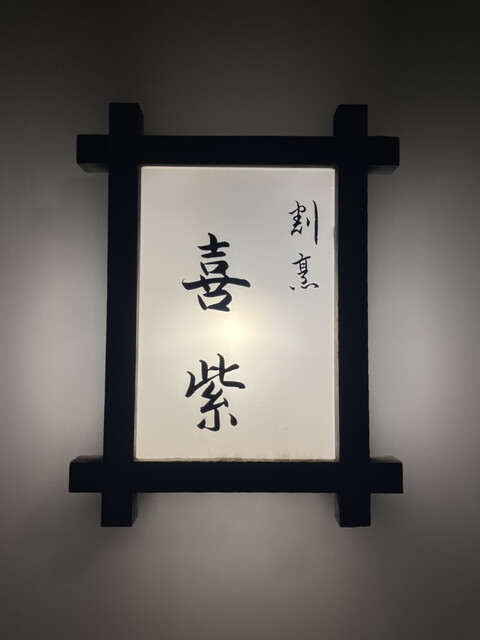 割烹
喜紫